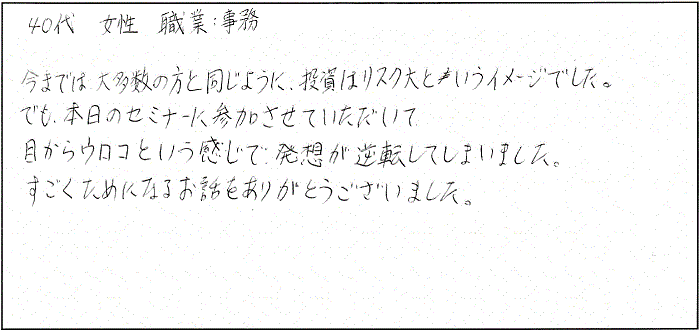 40代 女性 職業:事務
今までは、大多数の方と同じように、投資はリスク大というイメージでした。
でも、本日のセミナーに参加させていただいて
目からウロコという感じで、発想が逆転してしまいました。
すごくためになるお話をありがとうございました。